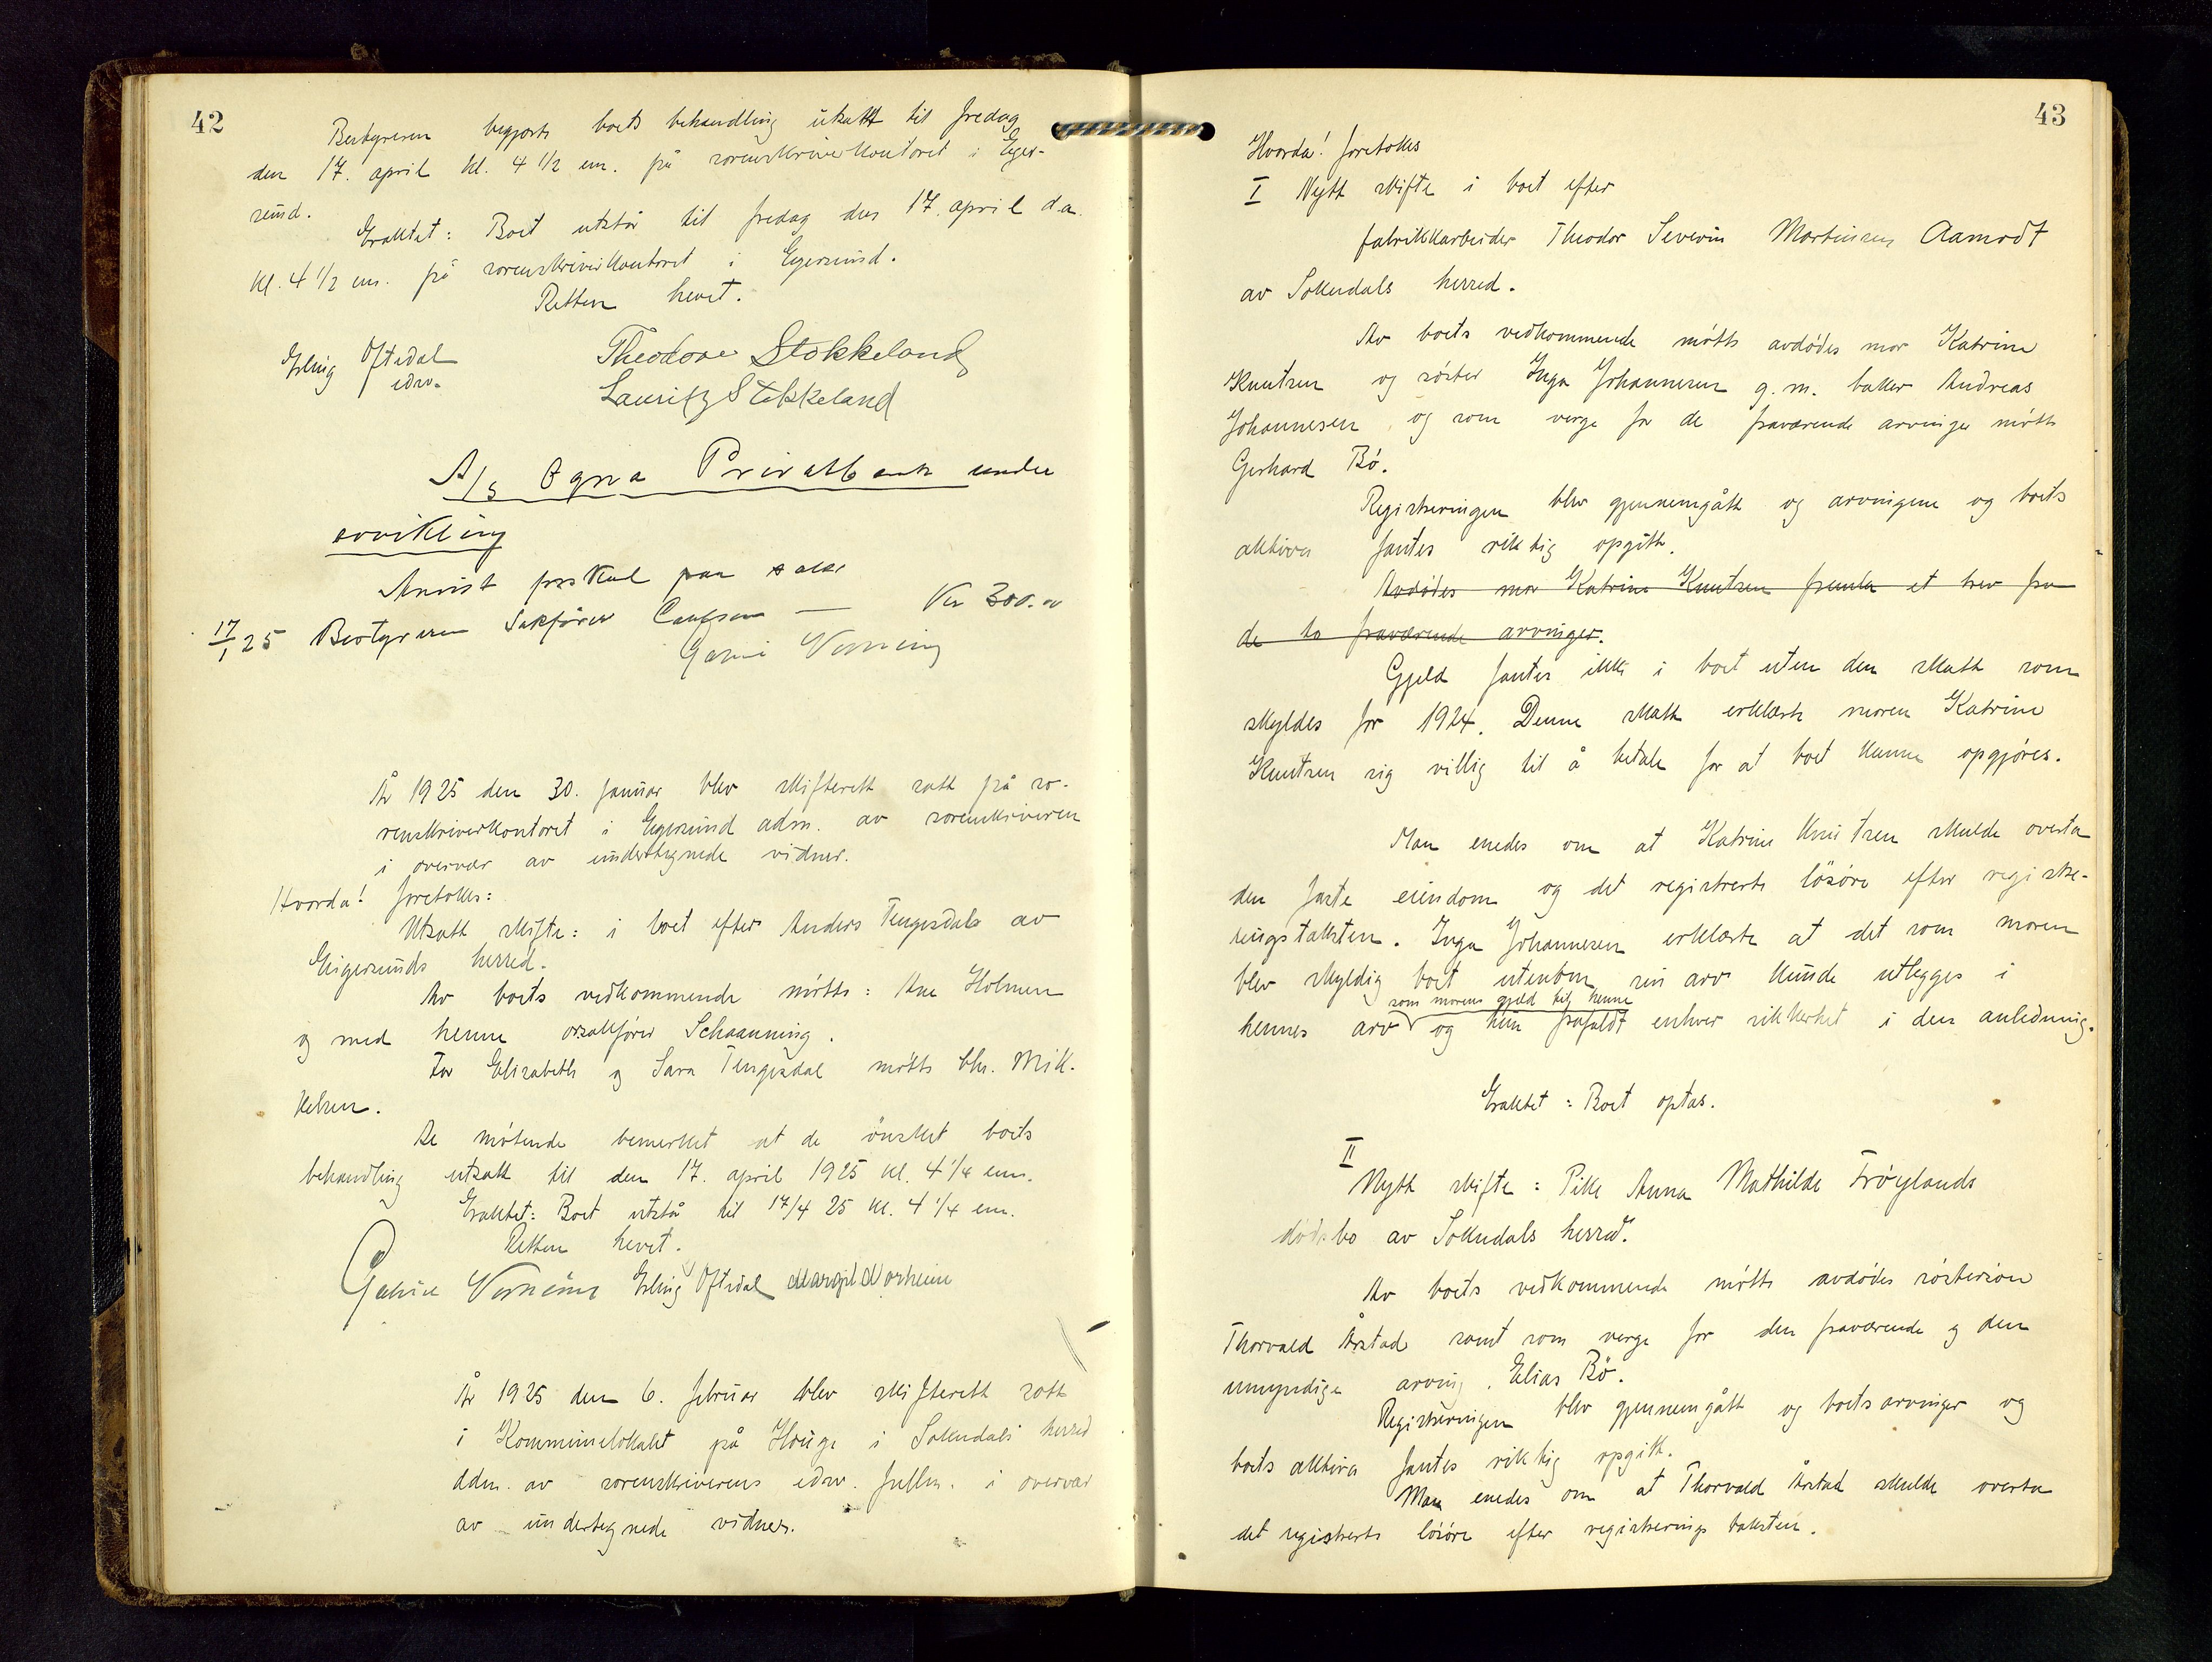 42
Bestyreren begjærte boets behandling utsatt til fredag
den 17. april kl. 4 1/2 em. på sorenskriverkontoret i Eger-
sund.
Eraktet: Boet utstår til fredag den 17. april d.a.
kl. 4 1/2 em. på sorenskriverkontoret i Egersund.
Retten hevet.
Erling Oftedal Theodore Stokkeland
edsv. Lauritz Stokkeland
A/s Ogna Privatbank under
avvikling
Anvist forskud paa salær
17/1 25 Bestyreren Sakfører — Kr 300.00
År 1925 den 30. januar blev skifterett satt på so-
renskriverkontoret i Egersund adm. av sorenskriveren
i overvær av undertegnede vidner.
Hvorda! foretokes:
Utsatt skifte: i boet efter Anders Tengesdal av
Eigersunds herred.
Av boets vedkommende møtte: Ane Holmen
og med henne o.r.sakfører Schaanning.
For Elisabeth og Sara Tengesdal møtte hr. Mik-
kelsen.
De møtende bemerket at de ønsket boets
behandling utsatt til den 17. april 1925 kl. 4 1/4 em.
Eraktet: Boet utstår til 17/4 25 kl. 4 1/4 em.
Retten hevet.
Erling Oftedal Margit Norheim
År 1925 den 6. februar blev skifterett satt
i Kommunelokalet på Hauge i Sokndals herred
adm. av sorenskriverens edsv. fullm. i overvær
av undertegnede vidner.
43
Hvorda! foretokes
I Nytt skifte i boet efter
fabrikkarbeider Theodor Severin Martinsen Aamodt
av Sokndals herred.
Av boets vedkommende møtte avdødes mor Katrine
Knutsen og søster Inga Johannesen g.m. baker Andreas
Johannesen og som verge for de fraværende arvinger møtte
Gerhard Bø.
Registreringen blev gjennemgått og arvingene og boets
aktiva fantes riktig opgitt.
Avdødes mor Katrine Knutsen fremla et brev fra
de to fraværende arvinger.
Gjeld fantes ikke i boet uten den skatt som
skyldes for 1924. Denne skatt erklærte moren Katrine
Knutsen sig villig til å betale for at boet kunne opgjøres.
Man enedes om at Katrine Knutsen skulde overta
den faste eiendom og det registrerte løsøre efter registre-
ringstaksten. Inga Johannesen erklærte at det som moren
blev skyldig boet utenom sin arv kunde utlegges i
som morens gjeld til henne
hennes arv og hun frafaldt enhver sikkerhet i den anledning.
Eraktet: Boet optas.
II
Nytt skifte: Pike Anna Mathilde Frøylands
dødsbo av Sokndals herred.
Av boets vedkommende møtte avdødes søstersøn
Thorvald Årstad samt som verge for den fraværende og den
umyndige arving, Elias Bø.
Registreringen blev gjennemgått og boets arvinger og
boets aktiva fantes riktig opgitt.
Man enedes om at Thorvald Årstad skulde overta
det registrerte løsøre efter registrerings taksten.